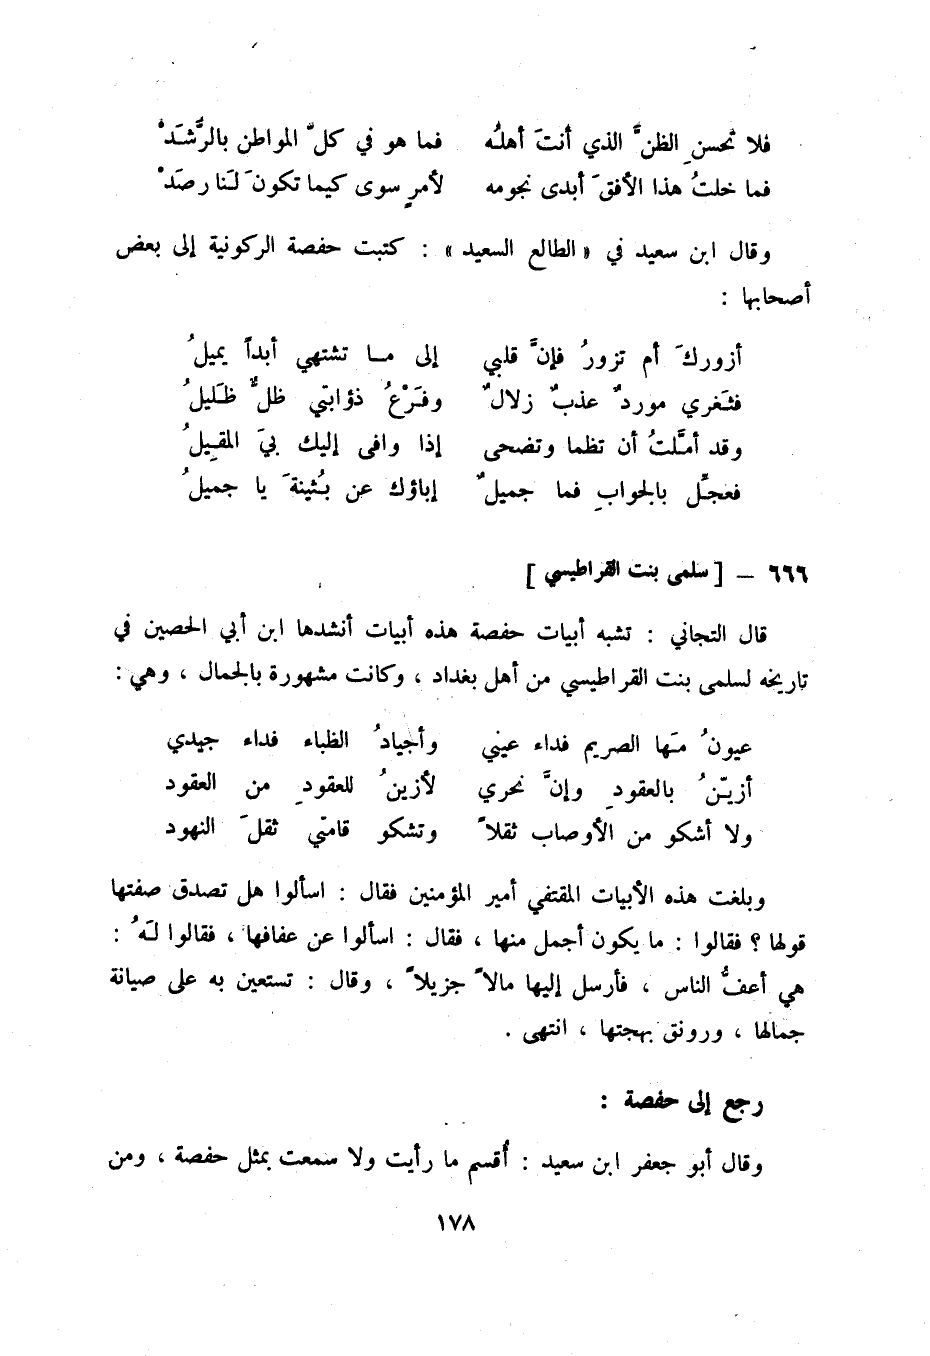 فلا تحسنِ الظنَّ الذي أنتَ أهلُه فما هو في كلّ المواطن بالرَّشَدْ
فما خلتُ هذا الأفقَ أبدى نجومه لأمرٍ سوى كيما تكونَ لَنا رصَدْ
وقال ابن سعيد في «الطالع السعيد» : كتبت حفصة الركونية إلى بعض
أصحابها :
أزوركَ أم تزورُ فإنَّ قلبي إلى مـا تشتهي أبداً يميلُ
فثَغري موردٌ عذبٌ زلالٌ وفَرْعُ ذؤابتي ظلٌّ ظَليلُ
وقد أمَّلتُ أن تظما وتضحى إذا وافى إليك بيَ المقيلُ
فعجّل بالجوابِ فما جميلٌ إباؤك عن بُثينةَ يا جميلُ
٦٦٦ – [ سلمى بنت القراطيسي ]
قال التجاني : تشبه أبيات حفصة هذه أبيات أنشدها ابن أبي الحصين في
تاريخه لسلمى بنت القراطيسي من أهل بغداد ، وكانت مشهورة بالجمال ، وهي :
عيونُ مَها الصريم فداء عيني وأجيادُ الظباء فداء جيدي
أزيّنُ بالعقودِ وإنَّ نحري لأزينُ للعقودِ من العقود
ولا أشكو من الأوصاب ثقلاً وتشكو قامتي ثقلَ النهود
وبلغت هذه الأبيات المقتفي أمير المؤمنين فقال : اسألوا هل تصدق صفتها
قولها ؟ فقالوا : ما يكون أجمل منها ، فقال : اسألوا عن عفافها ، فقالوا لَهُ :
هي أعفُّ الناس ، فأرسل إليها مالاً جزيلاً ، وقال : تستعين به على صيانة
جمالها ، ورونق بهجتها ، انتهى .
رجع إلى حفصة :
وقال أبو جعفر ابن سعيد : أُقسم ما رأيت ولا سمعت بمثل حفصة ، ومن
١٧٨